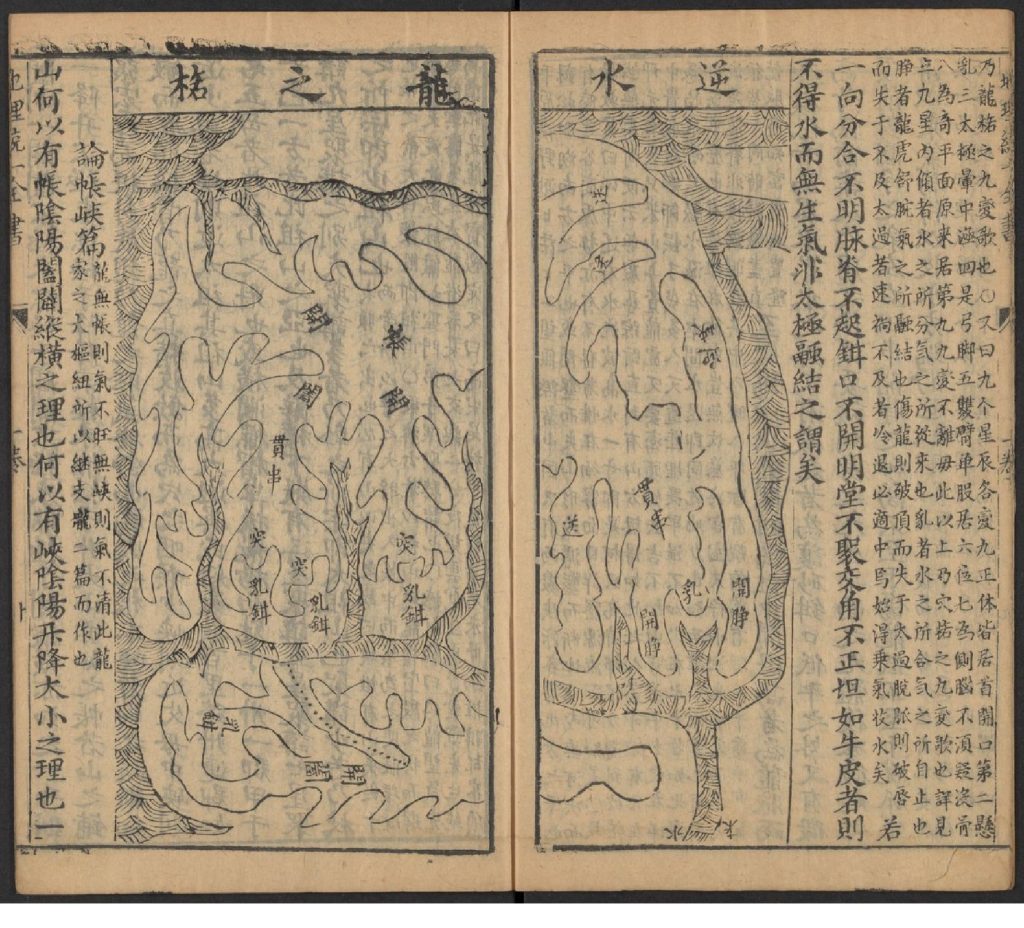 乃龍格之九變歌也○又曰九个星辰各變九正体皆居首開口第二懸
乳三太極暈中涵四是弓脚五雙臂單股居六位七為側腦不須疑沒骨
八為奇平面原来居第九九變不離毋此以上乃穴格之九変歌也詳見
九星内傾者水之所分气之所從来也乳者水之所合气之所自止也
者龍虎舒脘氣之所融結也傷龍則破頂而失于太過脫脈則破唇
而失于不及太過者速禍不及者冷退必適中焉始得乘氣收水矣 若
一向分合不明脉脊不起鉗口不開明堂不聚交角不正坦如牛皮者則
不得水而無生氣非太極融結之謂矣
逆水
送
貫串
乳
開
開
送
水
龍之格
開
闔
開
貫串
突
乳鉗
突
乳鉗
突
乳鉗
乳鉗
開
闔
論帳峽篇
龍無帳則氣不旺無峽則氣不清此龍
家之大樞紐所以継支壠二篇而作也
山何以有帳陰陽闔闢縱橫之理也何以有峽陰陽升降大小之理也一
地理統一全書
一卷
十